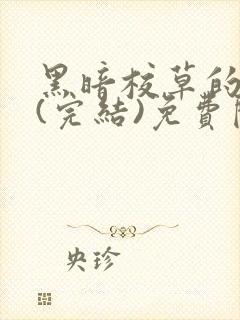 黑暗校草的
(完結)免費閱
央珍